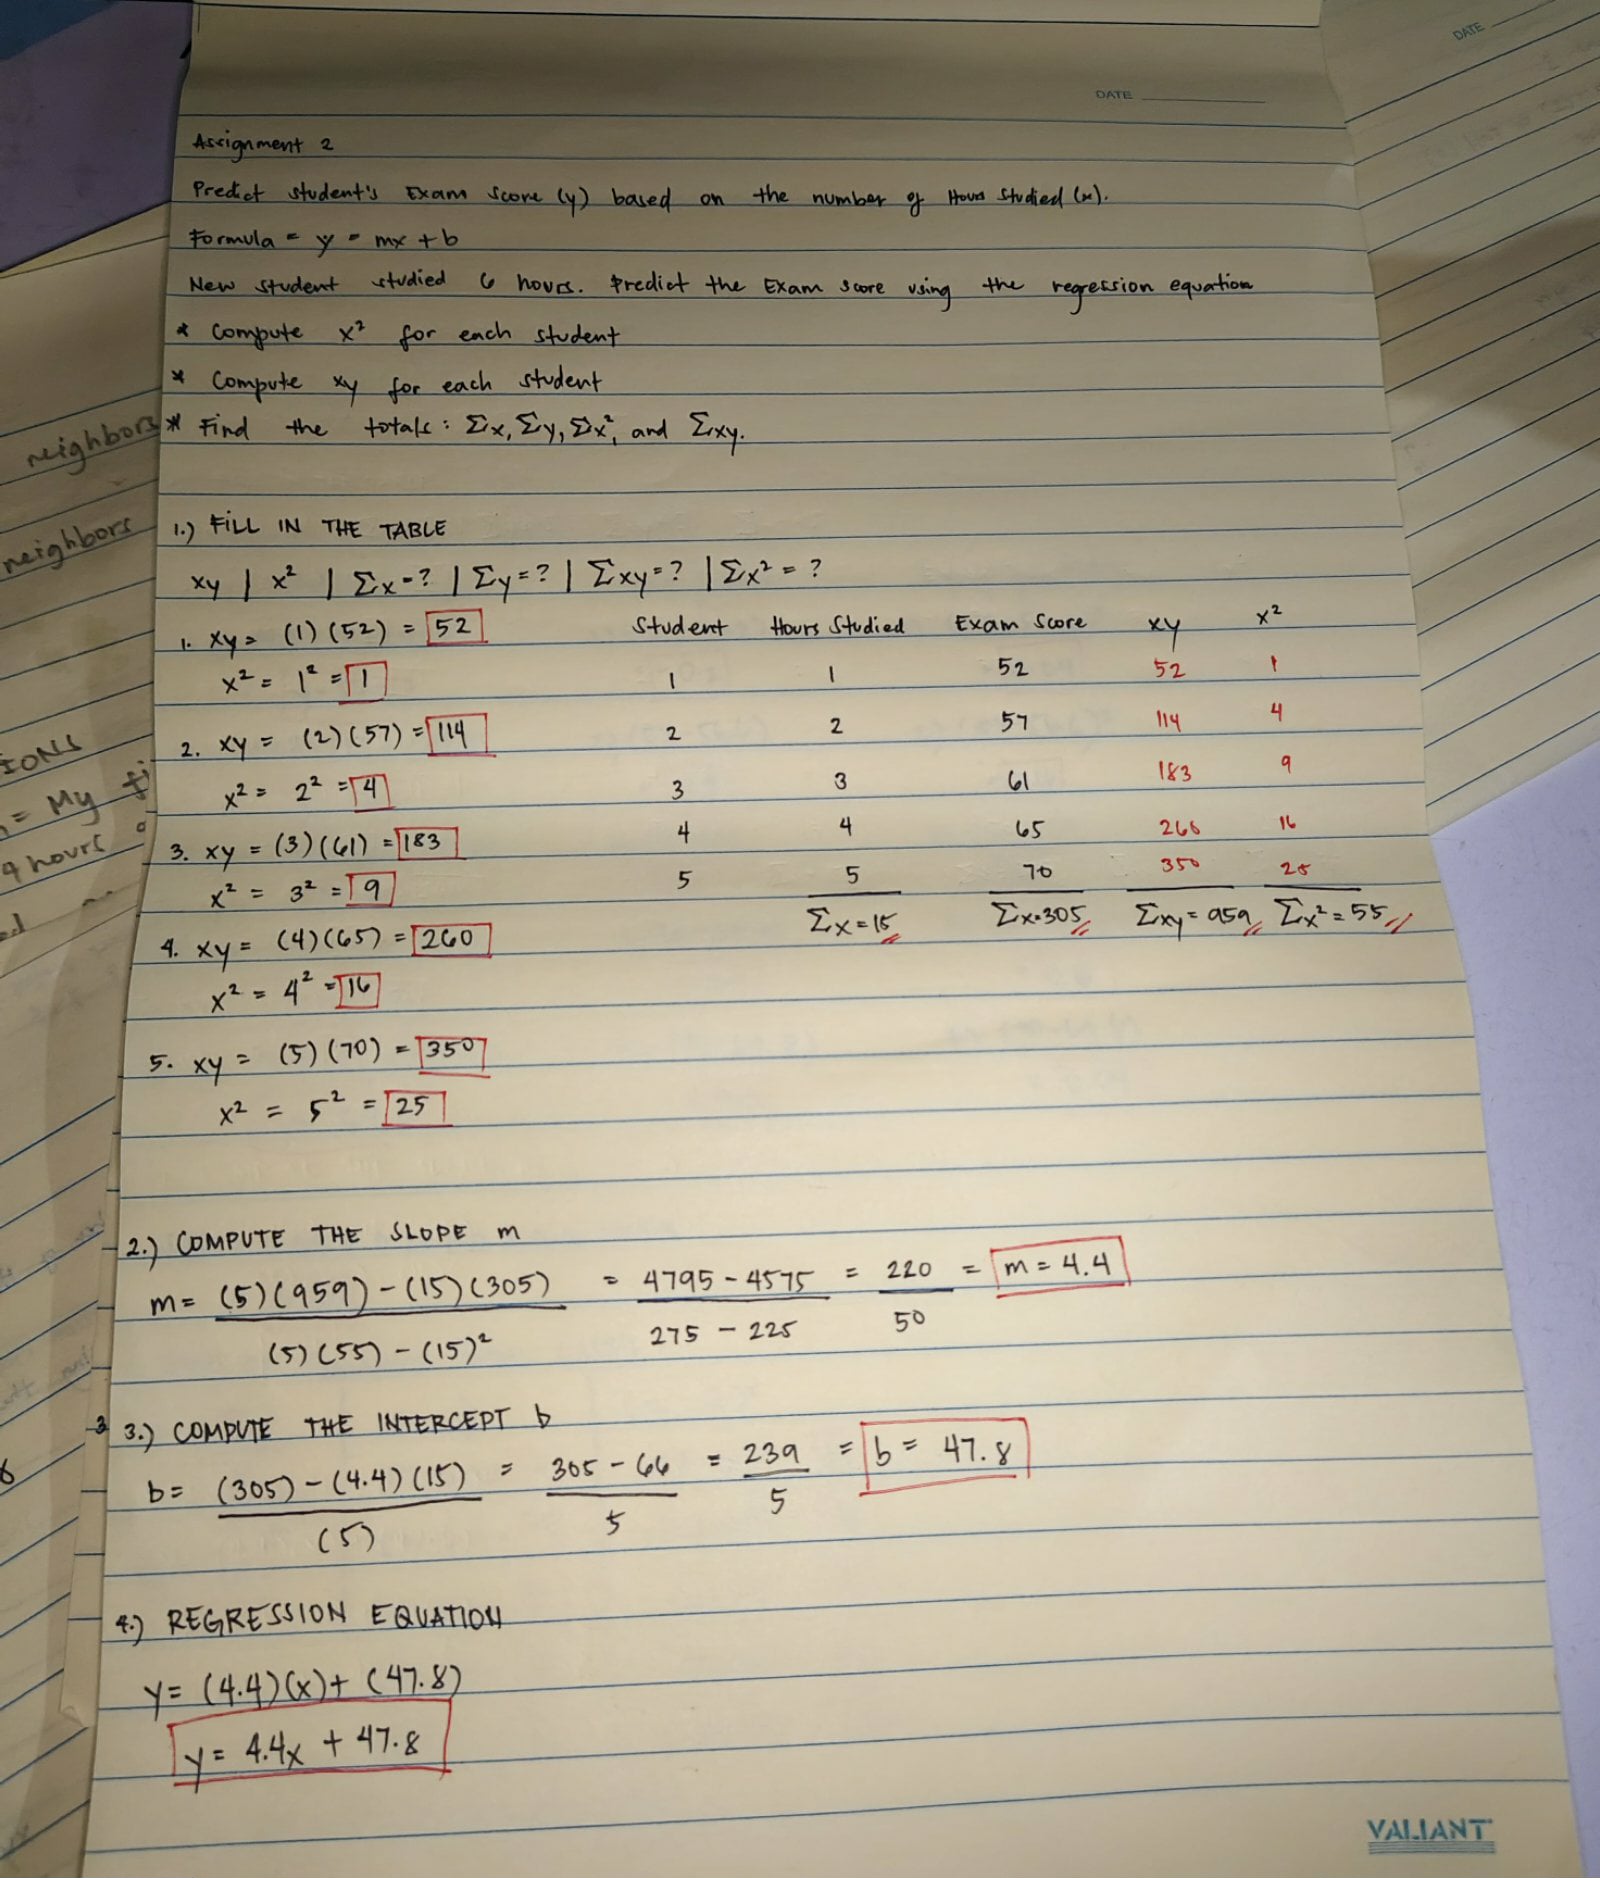 DATE
DATE
Assignment 2
Predict student's Exam Score (y) based on the number of Hours Studied (x).
Formula = y = mx + b
New student studied 6 hours. Predict the Exam Score using the regression equation
* Compute x² for each student
* Compute xy for each student
* Find the totals : Σx, Σy, Σx², and Σxy.
neighbors
neighbors
IONS
= My
9 hours
1.) FILL IN THE TABLE
xy | x² | Σx=? | Σy=? | Σxy=? | Σx² = ?
1. xy = (1)(52) = 52
x² = 1² = 1
2. xy = (2)(57) = 114
x² = 2² = 4
3. xy = (3)(61) = 183
x² = 3² = 9
4. xy = (4)(65) = 260
x² = 4² = 16
5. xy = (5)(70) = 350
x² = 5² = 25
Student Hours Studied Exam Score xy x²
1 1 52 52 1
2 2 57 114 4
3 3 61 183 9
4 4 65 260 16
5 5 70 350 25
Σx=15 Σx=305 Σxy=959 Σx²=55
2.) COMPUTE THE SLOPE m
m= (5)(959)-(15)(305) = 4795-4575 = 220 = m = 4.4
(5)(55)-(15)² 275 - 225 50
3 3.) COMPUTE THE INTERCEPT b
b= (305)-(4.4)(15) = 305-66 = 239 = b = 47.8
(5) 5 5
4.) REGRESSION EQUATION
y= (4.4)(x)+(47.8)
y= 4.4x + 47.8
VALIANT